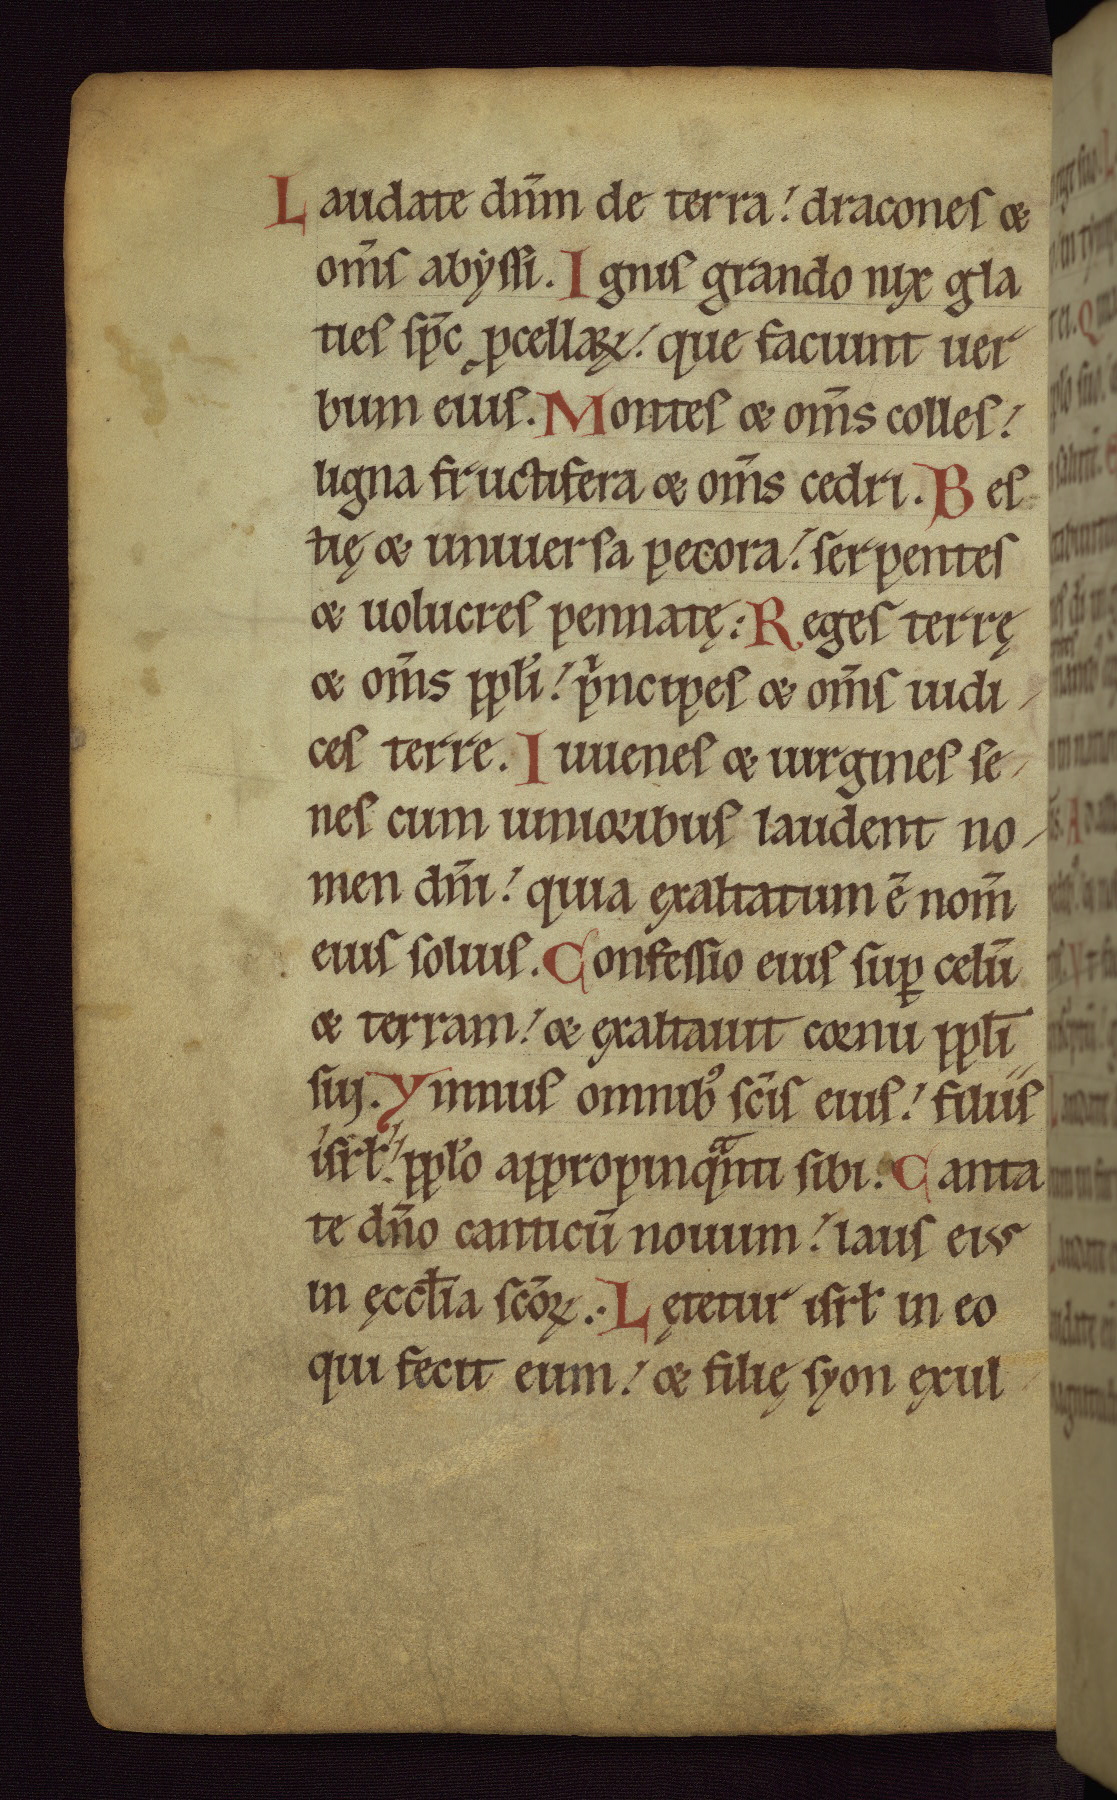 Laudate dñm de terra! dracones &
om̄s abẏssi. Ignis grando nix gla
ties sp̄c ꝓcellarꝝ! que faciunt uer
bum eius. Montes & om̄s colles!
ligna fructifera & om̄s cedri. Bes
tię & uniuersa pecora! serpentes
& uolucres pennatę: Reges terrę
& om̄s ppl̓i! pͥncipes & om̄s iudi
ces terre. Iuuenes & uirgines se
nes cum iunioribus laudent no
men dm̄i! quia ęxaltatum ē nom̄
eius solius. Confessio eius suꝑ celū
& terram! & ęxaltauit cornu ppl̄i
sij. Ymnus omnibꝰ sc̄is eius! filiis
isrl̓! ppl̓o appropinqͣnti sibi. Canta
te dño canticū nouum! laus eius
in ęccl̄ia sc̄oꝝ. Lętetur isrl̓ in eo
qui fecit eum! & filię syon ęxul